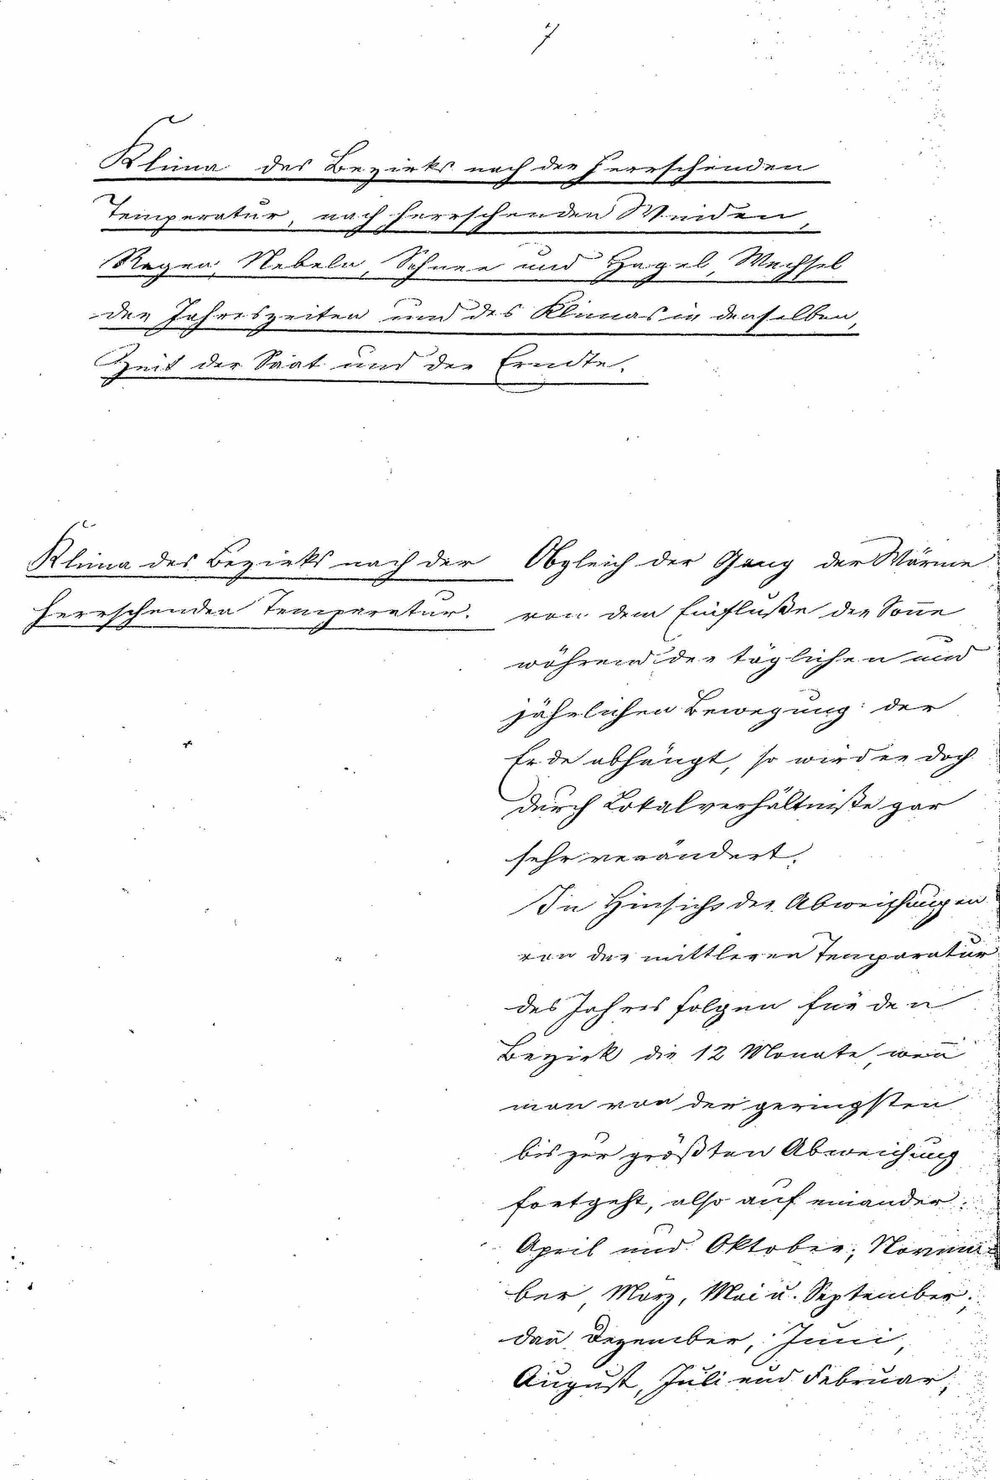 7
Klima des Bezirks nach der herrschenden
Temperatur, nach herrschenden Winden,
Regen, Nebeln, Schnee und Hagel, Wechsel
der Jahreszeiten und des Klimas in denselben,
Zeit der Saat und der Erndte.
Klima des Bezirks nach der
herrschenden Temperatur.
Obgleich der Gang der Wärme
von dem Einfluße der Soñe
während der täglichen und
jährlichen Bewegung der
Erde abhängt, so wird er doch
durch Lokalverhältniße gar
sehr verändert.
In Hinsicht der Abweichungen
von der mittleren Temparatur
des Jahres folgen für den
Bezirk die 12 Monate, weñ
man von der geringsten
bis zur größten Abweichung
fortgeht, also auf einander:
April und Oktober, Novem-
ber, März, Mai u. September,
dañ Dezember, Juni,
August, Juli und Februar,